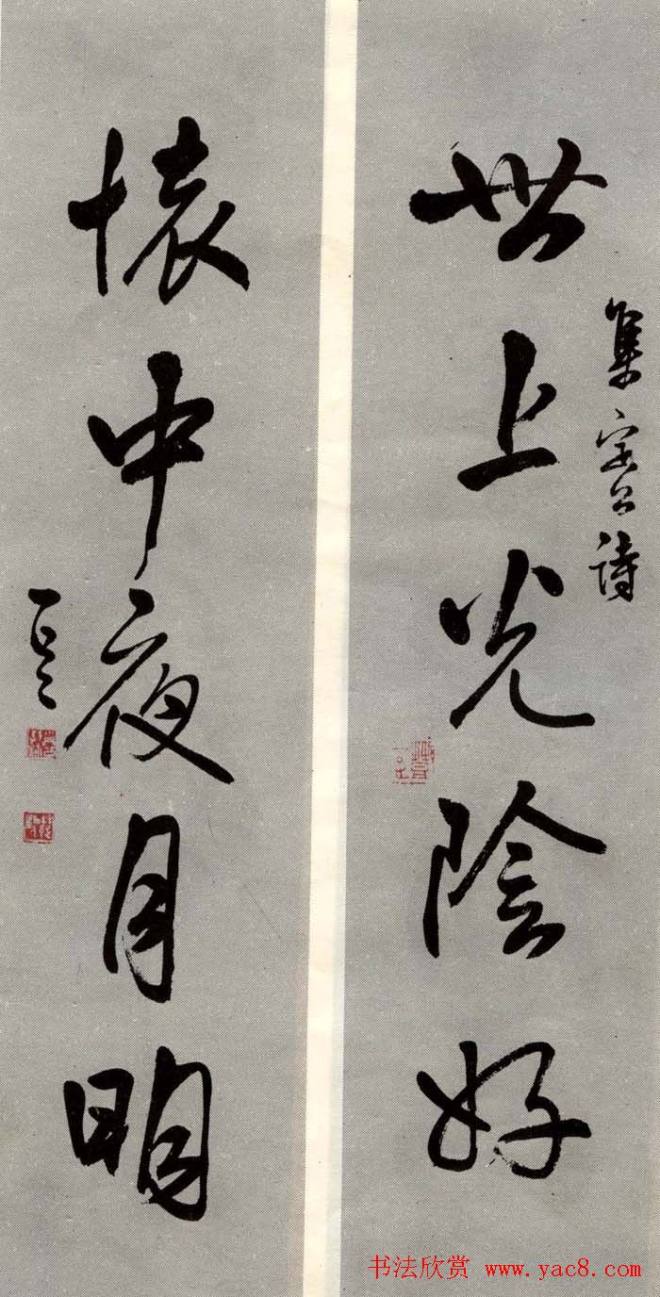 世上光陰好
集 詩
懷中夜月明
书法欣赏 www.yac8.com